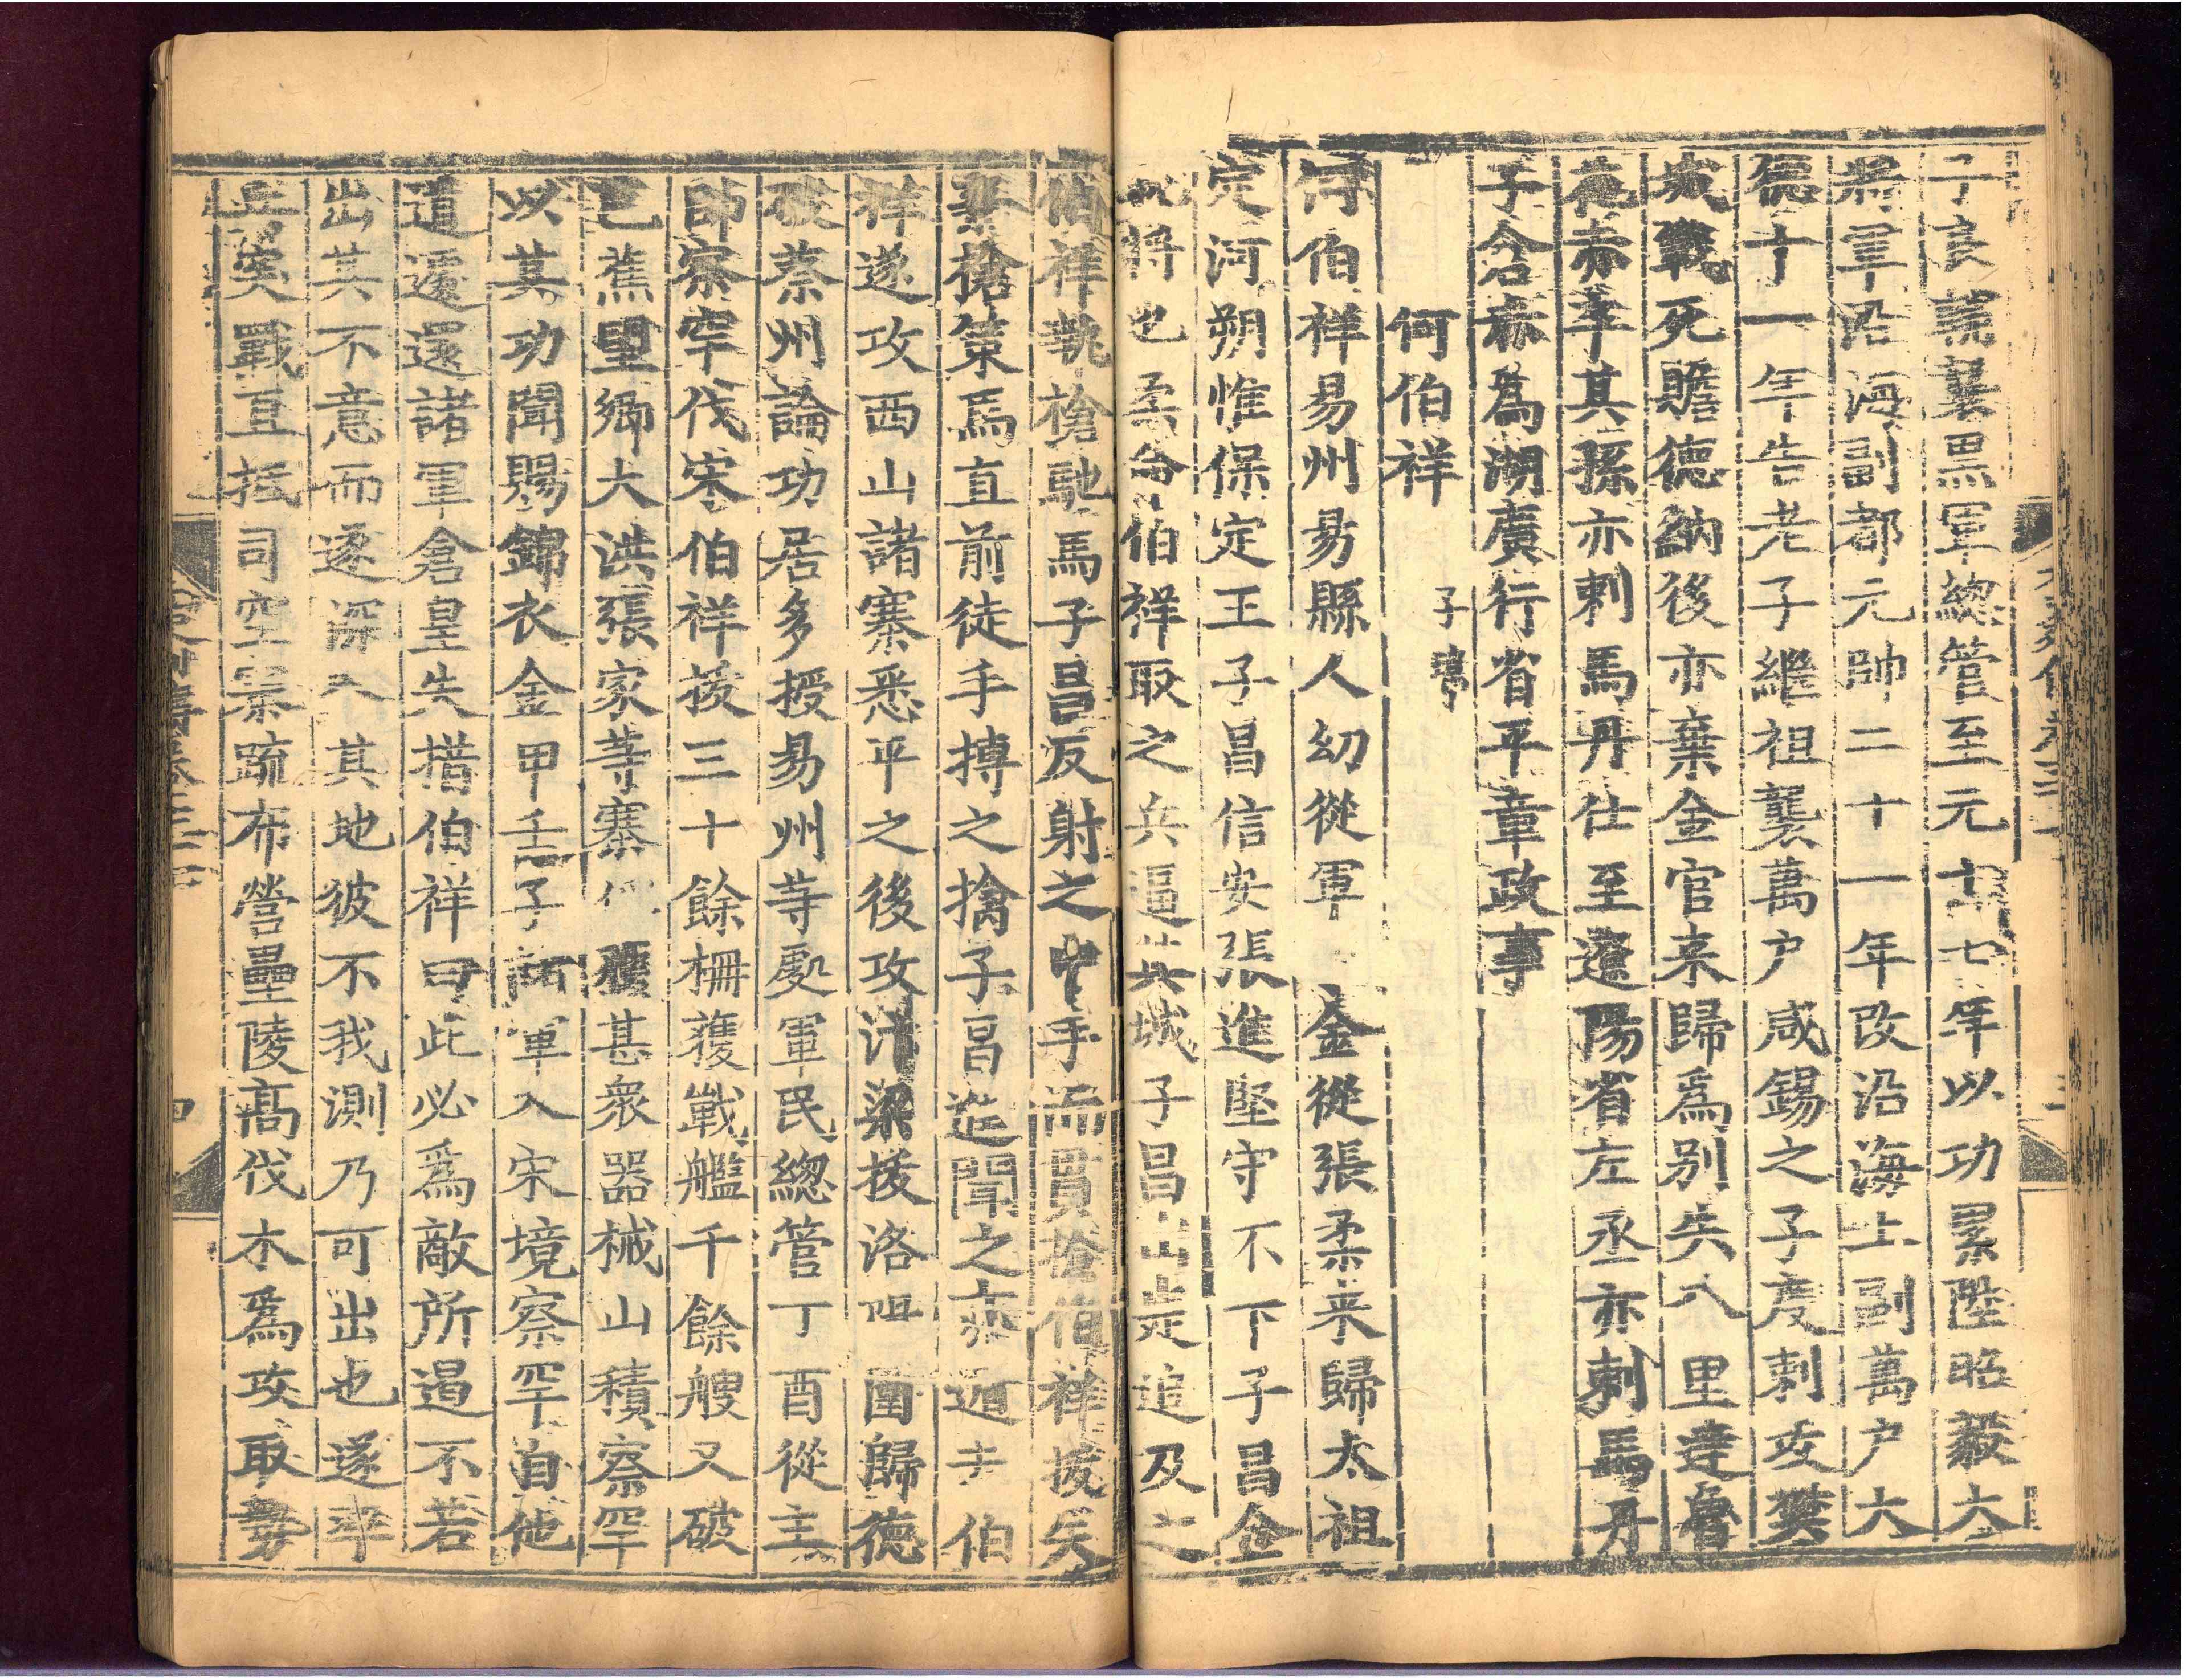 子良襲黑軍緫管至元十七年以功累陞昭毅大
將軍沿海副都元帥二十一年改沿海上副萬户大
德十一年告老子繼祖襲萬户咸錫之子度剌攻樊
城戰死贍德納後亦棄金官来歸爲别失八里達魯
花赤卒其孫亦剌馬丹仕至遼陽省左丞亦剌馬丹
子含麻爲湖廣行省平章政事
何伯祥 子瑋
何伯祥易州易縣人幼從軍 金從張柔来歸太祖
定河朔惟保定王子昌信安張進堅守不下子昌金
將也柔命伯祥取之兵逼其城子昌出走追及之
伯祥執槍馳馬子昌反射之中手而貫槍伯祥拔矢
棄槍策馬直前徒手搏之擒子昌進聞之亦遁去伯
祥遂攻西山諸寨悉平之後攻汴梁援洛 圍歸德
破蔡州論功居多授易州等處軍民緫管丁酉從主
帥察罕伐宋伯祥拔三十餘柵獲戰艦千餘艘又破
 蕉𤯝鄉大洪張家等寨 甚衆器械山積察罕
以其功聞賜錦衣金甲壬子 軍入宋境察罕自他
道還諸軍倉皇失措伯祥曰此必爲敵所遏不若
出其不意而逐深入其地彼不我測乃可出也遂率
兵 戰直抵司空寨疏布營壘陵高伐木爲攻取勢